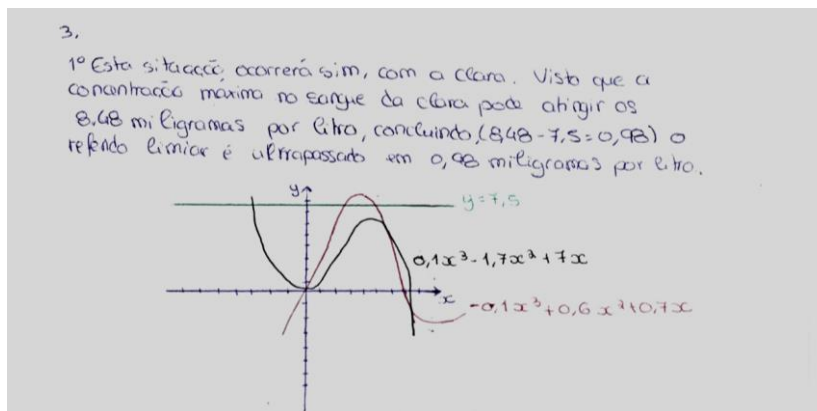 3.
1º Esta situação, ocorrerá sim, com a Clara. Visto que a
concentração maxima no sangue da clara pode atingir os
8.48 miligramas por litro, concluindo, (8,48-7,5=0,98) o
referido limiar é ultrapassado em 0,98 miligramas por litro.
y
y=7,5
0,1x³-1,7x²+7x
x
-0,1x³+0,6x²+0,7x